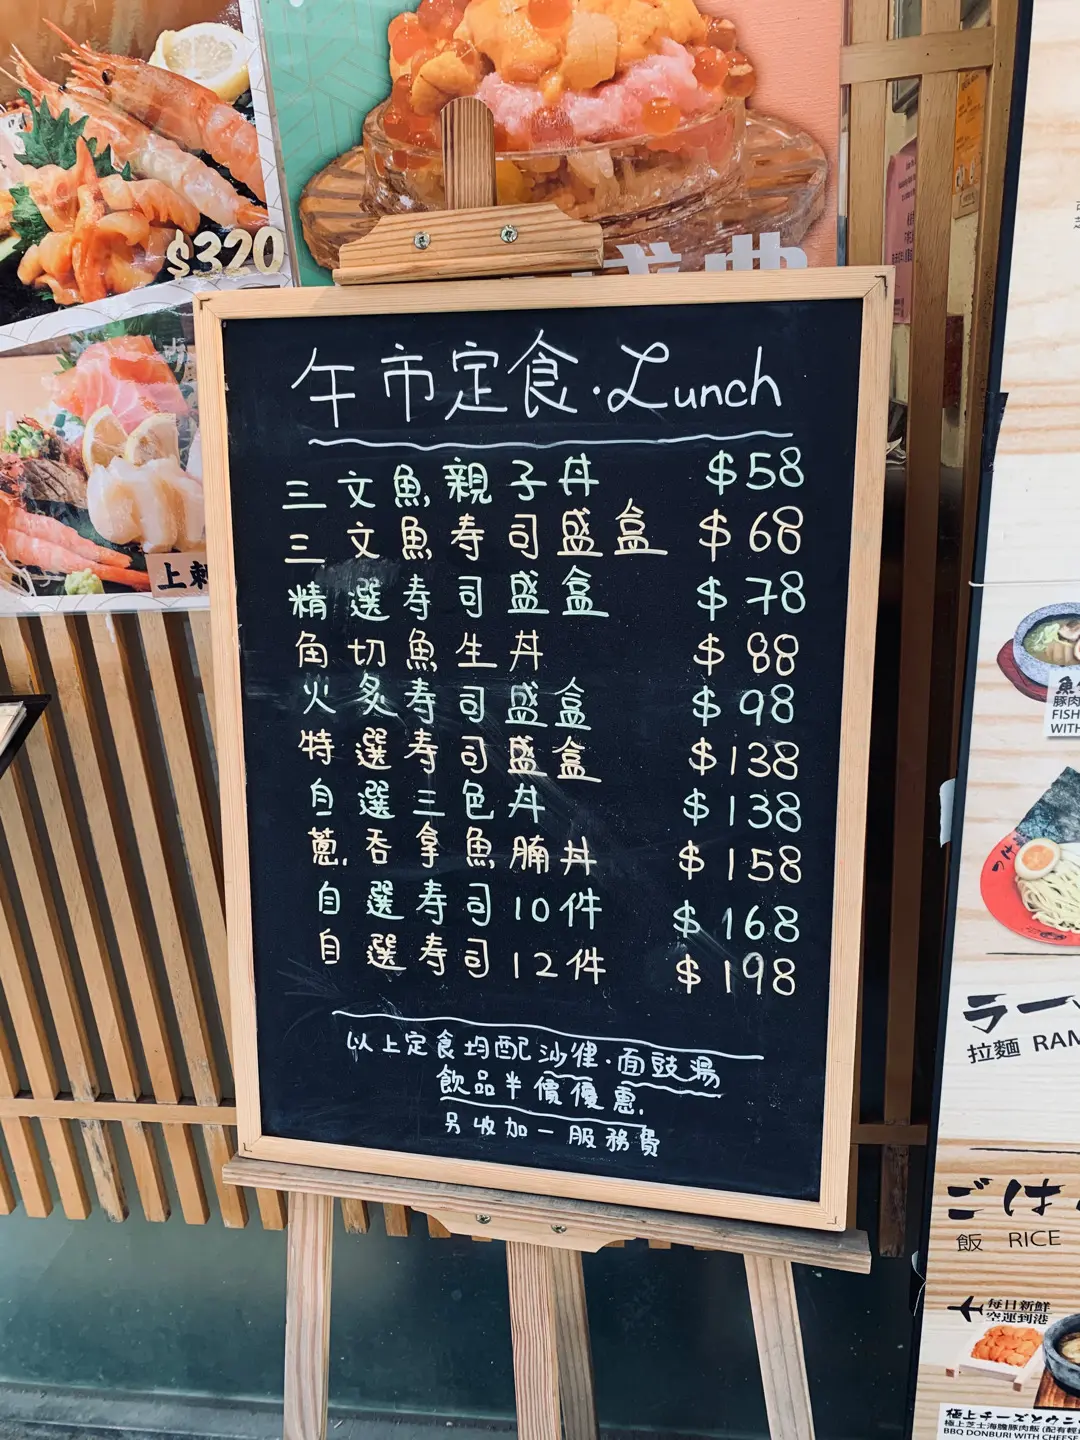 $320
上刺
午市定食·Lunch
三文魚親子丼 $58
三文魚寿司盛盒 $68
精選寿司盛盒 $78
角切魚生丼 $88
火炙寿司盛盒 $98
特選寿司盛盒 $138
自選三色丼 $138
蔥吞拿魚腩丼 $158
自選寿司10件 $168
自選寿司12件 $198
以上定食均配沙律·面豉湯
飲品半價優惠.
另收加一服務費
豚肉
FISH
WITH
ラー
拉麵 RAM
ごは
飯 RICE
每日新鮮
空運到港
極上チーズとウニ
極上芝士海膽豚肉飯(配有輕
BBQ DONBURI WITH CHEESE